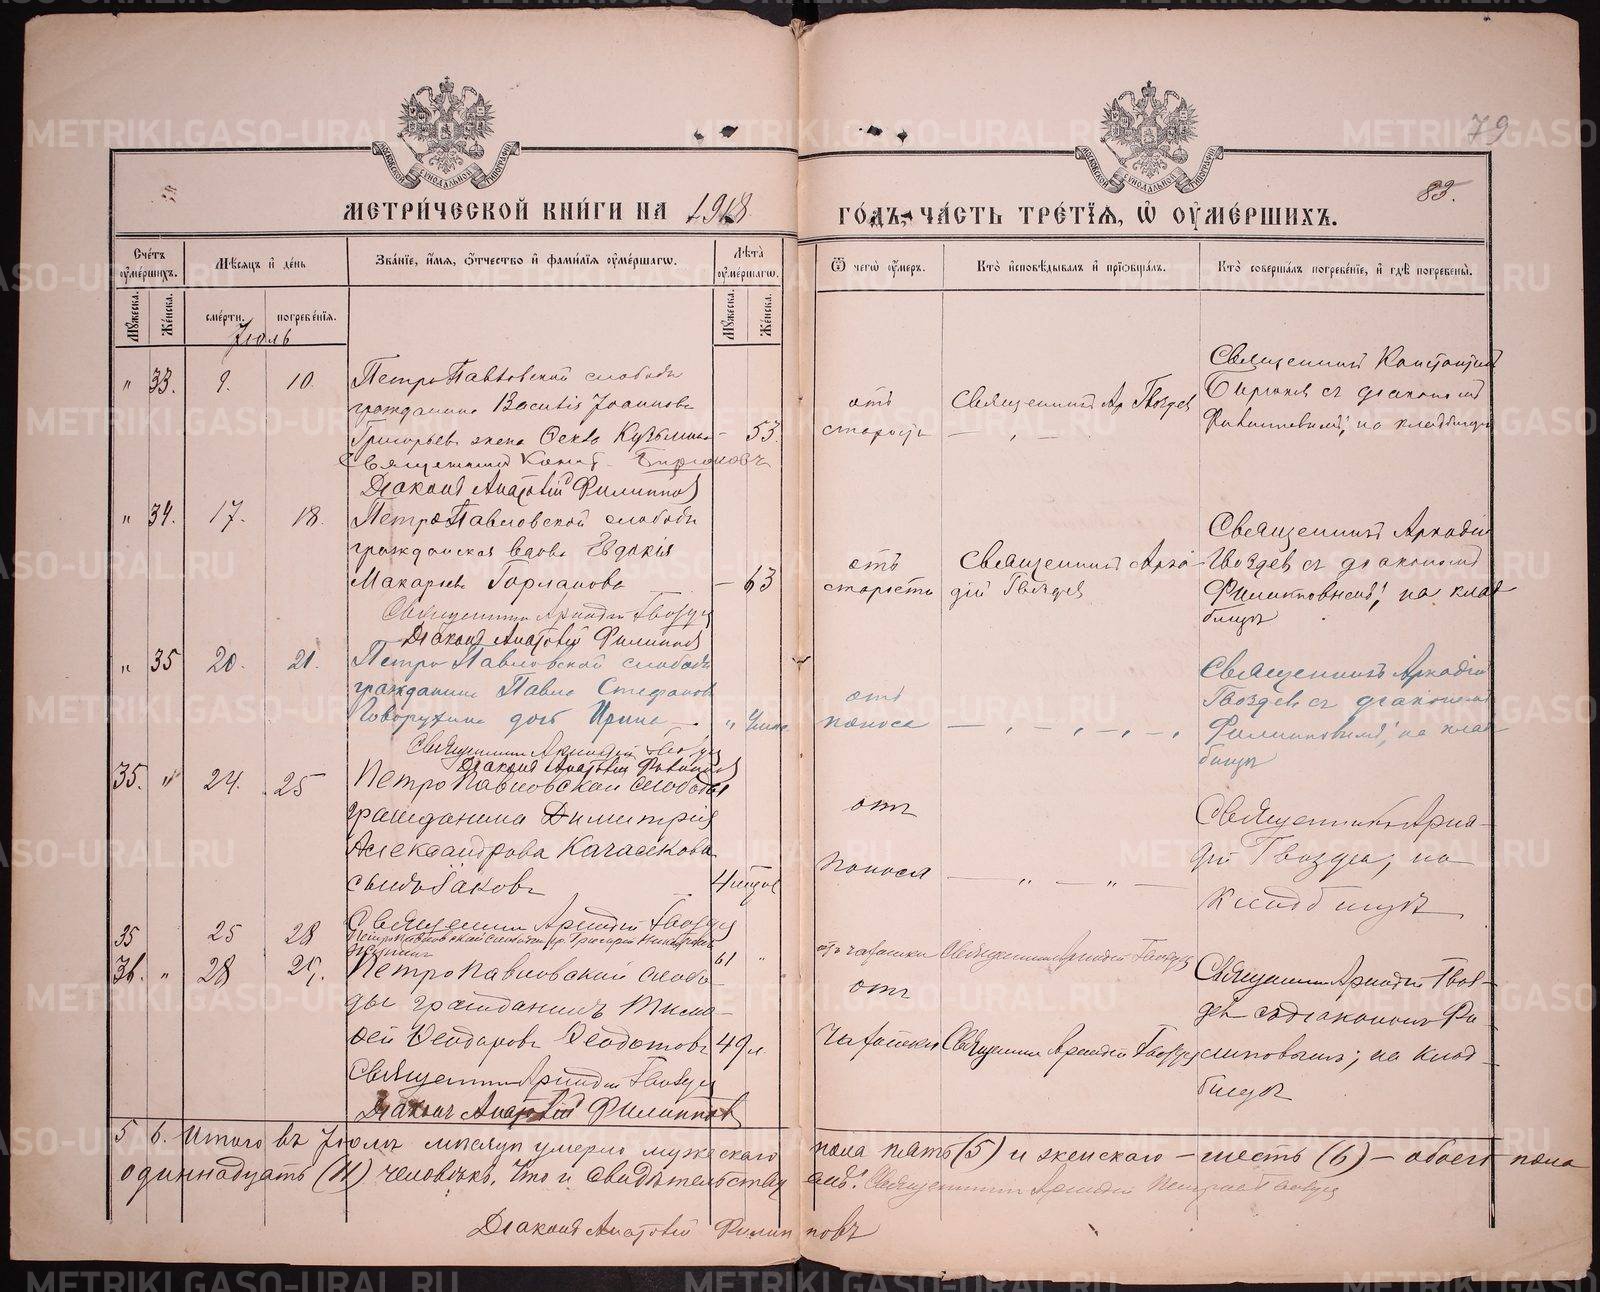 79
83.
МЕТРИЧЕСКОЙ КНИГИ НА 1918
ГОДЪ, ЧАСТЬ ТРЕТІЯ, Ѽ ОУМЕРШИХЪ.
Счетъ оумершихъ.
Мѣсяцъ и день
Званіе, имя, отчество и фамилія оумершагѡ.
Лѣта оумершагѡ.
Ѿ чегѡ оумеръ.
Кто исповѣдывалъ и пріобщалъ.
Кто совершалъ погребеніе, и гдѣ погребены.
Мужеска.
Женска.
смерти.
погребенія.
Мужеска.
Женска.
Іюль
" 33. 9. 10.
Петропавловской слободы
гражданина
Григорьева жена Кузьмина - 53
Священникъ Конст. Бирюковъ
Діаконъ Анатолій Филипповъ
отъ
старости
Священникъ Ар Гвоздев
Священникъ Константин
Бирюков съ діаконом
Филипповымъ, на кладбищѣ
" 34. 17. 18.
Петропавловской слободы
гражданская вдова Евдокія
Макарьева - 63
Священник Аркадій Гвоздев
Діаконъ Анатолій Филиппов
отъ
старости
Священникъ Арка
дій Гвоздев
Священникъ Аркадій
Гвоздев съ діаконом
Филипповымъ, на клад
бищѣ
" 35 20. 21.
Петропавловской слободы
гражданина Павла Стефанова
Говорухина дочь Ирина "
Священник Аркадій Гвоздев
Діаконъ Анатолій Филиппов
отъ
поноса
Священникъ Аркадій
Гвоздев съ діаконом
Филипповымъ, на клад
бищѣ
35. " 24. 25
Петропавловской слободы
гражданина Димитрія
Александрова Качалкова
сынъ Іаковъ
Священник Аркадій Гвоздев
отъ
поноса
Священникъ Арка-
дій Гвоздев, на
кладбищѣ
35 25 28
Петропавловской слободы гр. Григорій
61 "
отъ чахотки Священник Аркадій Гвоздев
36. " 28 29.
Петропавловской слобо-
ды гражданинъ Тимо-
фей Ѳеодоровъ Ѳедотовъ 49 л
Священник Аркадій Гвоздев
Діаконъ Анатолій Филиппов
отъ
чахотки Священник Аркадій Гвоздев
Священник Аркадій Гвоз-
дев съ діакономъ Фи-
липповымъ, на клад-
бищѣ
5 6. Итого въ Іюлѣ мѣсяцѣ умерло мужескаго пола пять (5) и женскаго - шесть (6) - обоего пола
одиннадцать (11) человѣкъ. Что и свидѣтельствуемъ: Священник Аркадій Гвоздев
Діаконъ Анатолій Филипповъ
METRIKI.GASO-URAL.RU